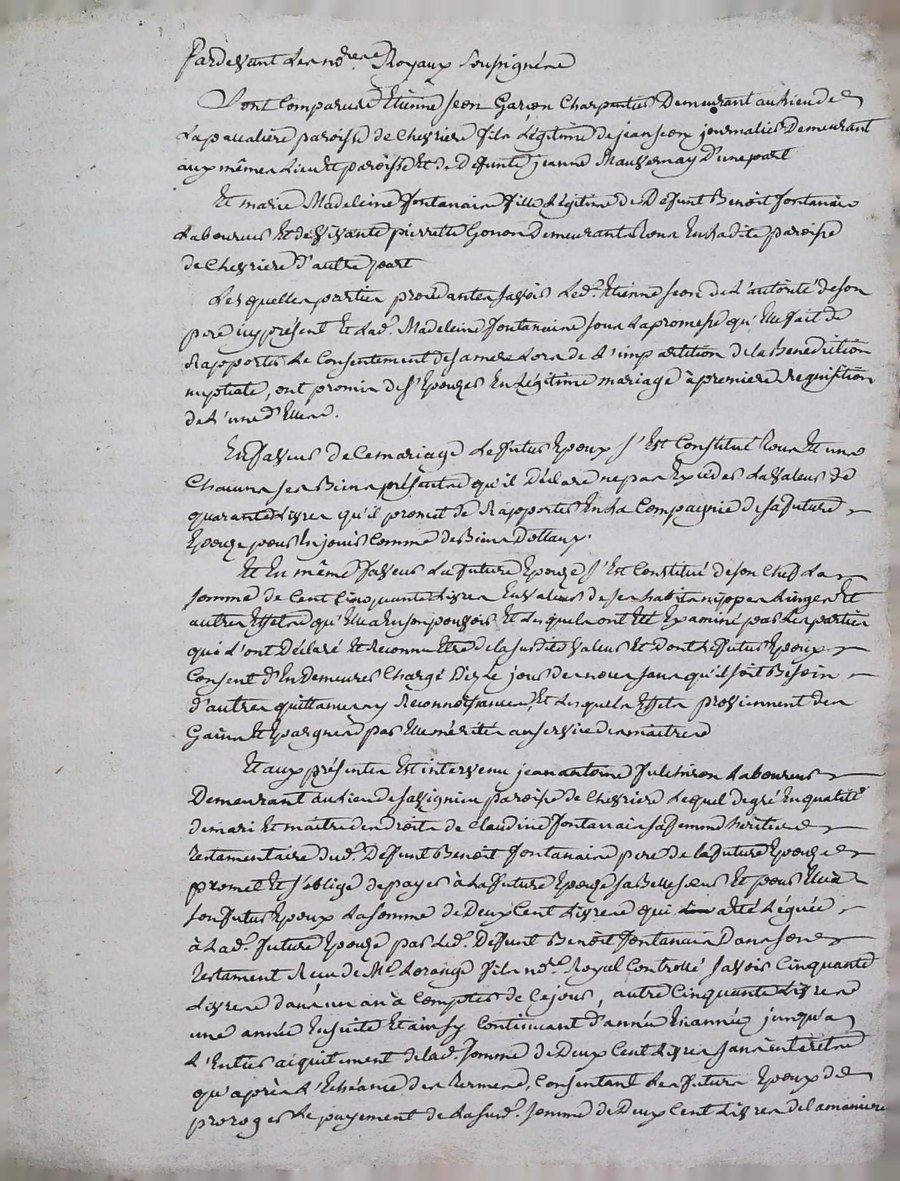 Pardevant Les no.res Royaux Soussignéz
Sont Comparus Etienne Jeon Garçon Charpentier Demeurant au Lieu de
Lapacalière paroisse de Chevrière fils Légitime de jean Jeon journalier Demeurant
aux mêmes Lieu et paroisse Et de Défunte jeanne Mauvernay D'une part
Et marie Madeleine fontanaire fille Légitime de Défunt Benoit fontanaire
Laboureur Et de Vivante pierrette Gonon Demeurants tous En Ladite paroisse
de Chevriere d'autre part
Lesquelles parties procédantes Savoir Led. Etienne Jeon de L'autorité de son
pere icy présent Et Lad. Madeleine fontanaire sous La promesse qu'Elle fait de
Rapporter Le Consentement de sa mere Lors de L'impartition de la Benediction
nuptiale, ont promis de s'Epouzer En Légitime mariage à premiere Requisition
de L'une d'Elles.
En faveur de Ce mariage Le futur Epoux s'Est Constitué tous Et uns
Chacuns ses Biens présents qu'il Déclare ne pas Exceder La Valeur de
quarante Livres qu'il promet de Rapporter En La Compagnie de sa future
Epouze pour En jouir Comme de Biens Dotaux.
Et En même faveur La future Epouze s'Est Constitué de son Chef La
somme de Cent Cinquante Livres En Valeur de ses habits nippes Linges Et
autres Effets qu'Elle a En son pouvoir Et Lesquels ont Eté Examiné par Les parties
qui L'ont Déclaré Et Reconnu Etre de la susdite Valeur Et Dont Le futur Epoux
Consent d'En Demeurer Chargé Dès Le jour des noces sans qu'il soit Besoin
d'autres quittances ny Reconnoissances, Et Lesquels Effets proviennent des
Gains Et Epargnes par Elle mérités au service des maitres
Et aux présentes Est intervenu jean antoine fulchiron Laboureur
Demeurant au Lieu de Savignieu paroisse de Chevriere Lequel de gré En qualité
de mari Et maitre des droits de Claudine fontanaire sa femme héritiere
testamentaire dud. Défunt Benoit fontanaire pere de la future Epouze
promet Et s'oblige de payer à La future Epouze sa Belle sœur Et pour Elle à
son futur Epoux La somme de Deux Cent Livres qui a Eté Léguée
à Lad. future Epouze par Led. Défunt Benoit fontanaire Dans son
testament Reçu de Me. Lorange fils no.re Royal Controllé Savoir Cinquante
Livres dans un an à Compter de Ce jour, autre Cinquante Livres
une année Ensuite Et ainsy Continuant d'année En année jusqu'a
L'Entier acquittement de lad. somme de Deux Cent Livres sans intérêts
qu'après L'Echéance des termes, Consentant Les futurs Epoux de
proroger Le payement de La sud. somme de Deux Cent Livres de la maniere